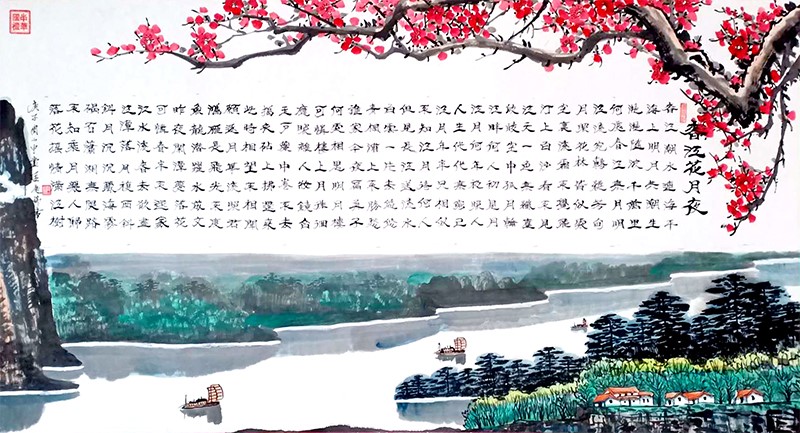 春江花月夜
春江潮水連海平
海上明月共潮生
灩灩隨波千萬里
何處春江無月明
江流宛轉繞芳甸
月照花林皆似霰
空裏流霜不覺飛
汀上白沙看不見
江天一色無纖塵
皎皎空中孤月輪
江畔何人初見月
江月何年初照人
人生代代無窮已
江月年年望相似
不知江月待何人
但見長江送流水
白雲一片去悠悠
青楓浦上不勝愁
誰家今夜扁舟子
何處相思明月樓
可憐樓上月徘徊
應照離人妝鏡台
玉戶簾中卷不去
搗衣砧上拂還來
此時相望不相聞
願逐月華流照君
鴻雁長飛光不度
魚龍潛躍水成文
昨夜閑潭夢落花
可憐春半不還家
江水流春去欲盡
江潭落月復西斜
斜月沉沉藏海霧
碣石瀟湘無限路
不知乘月幾人歸
落花搖情滿江樹